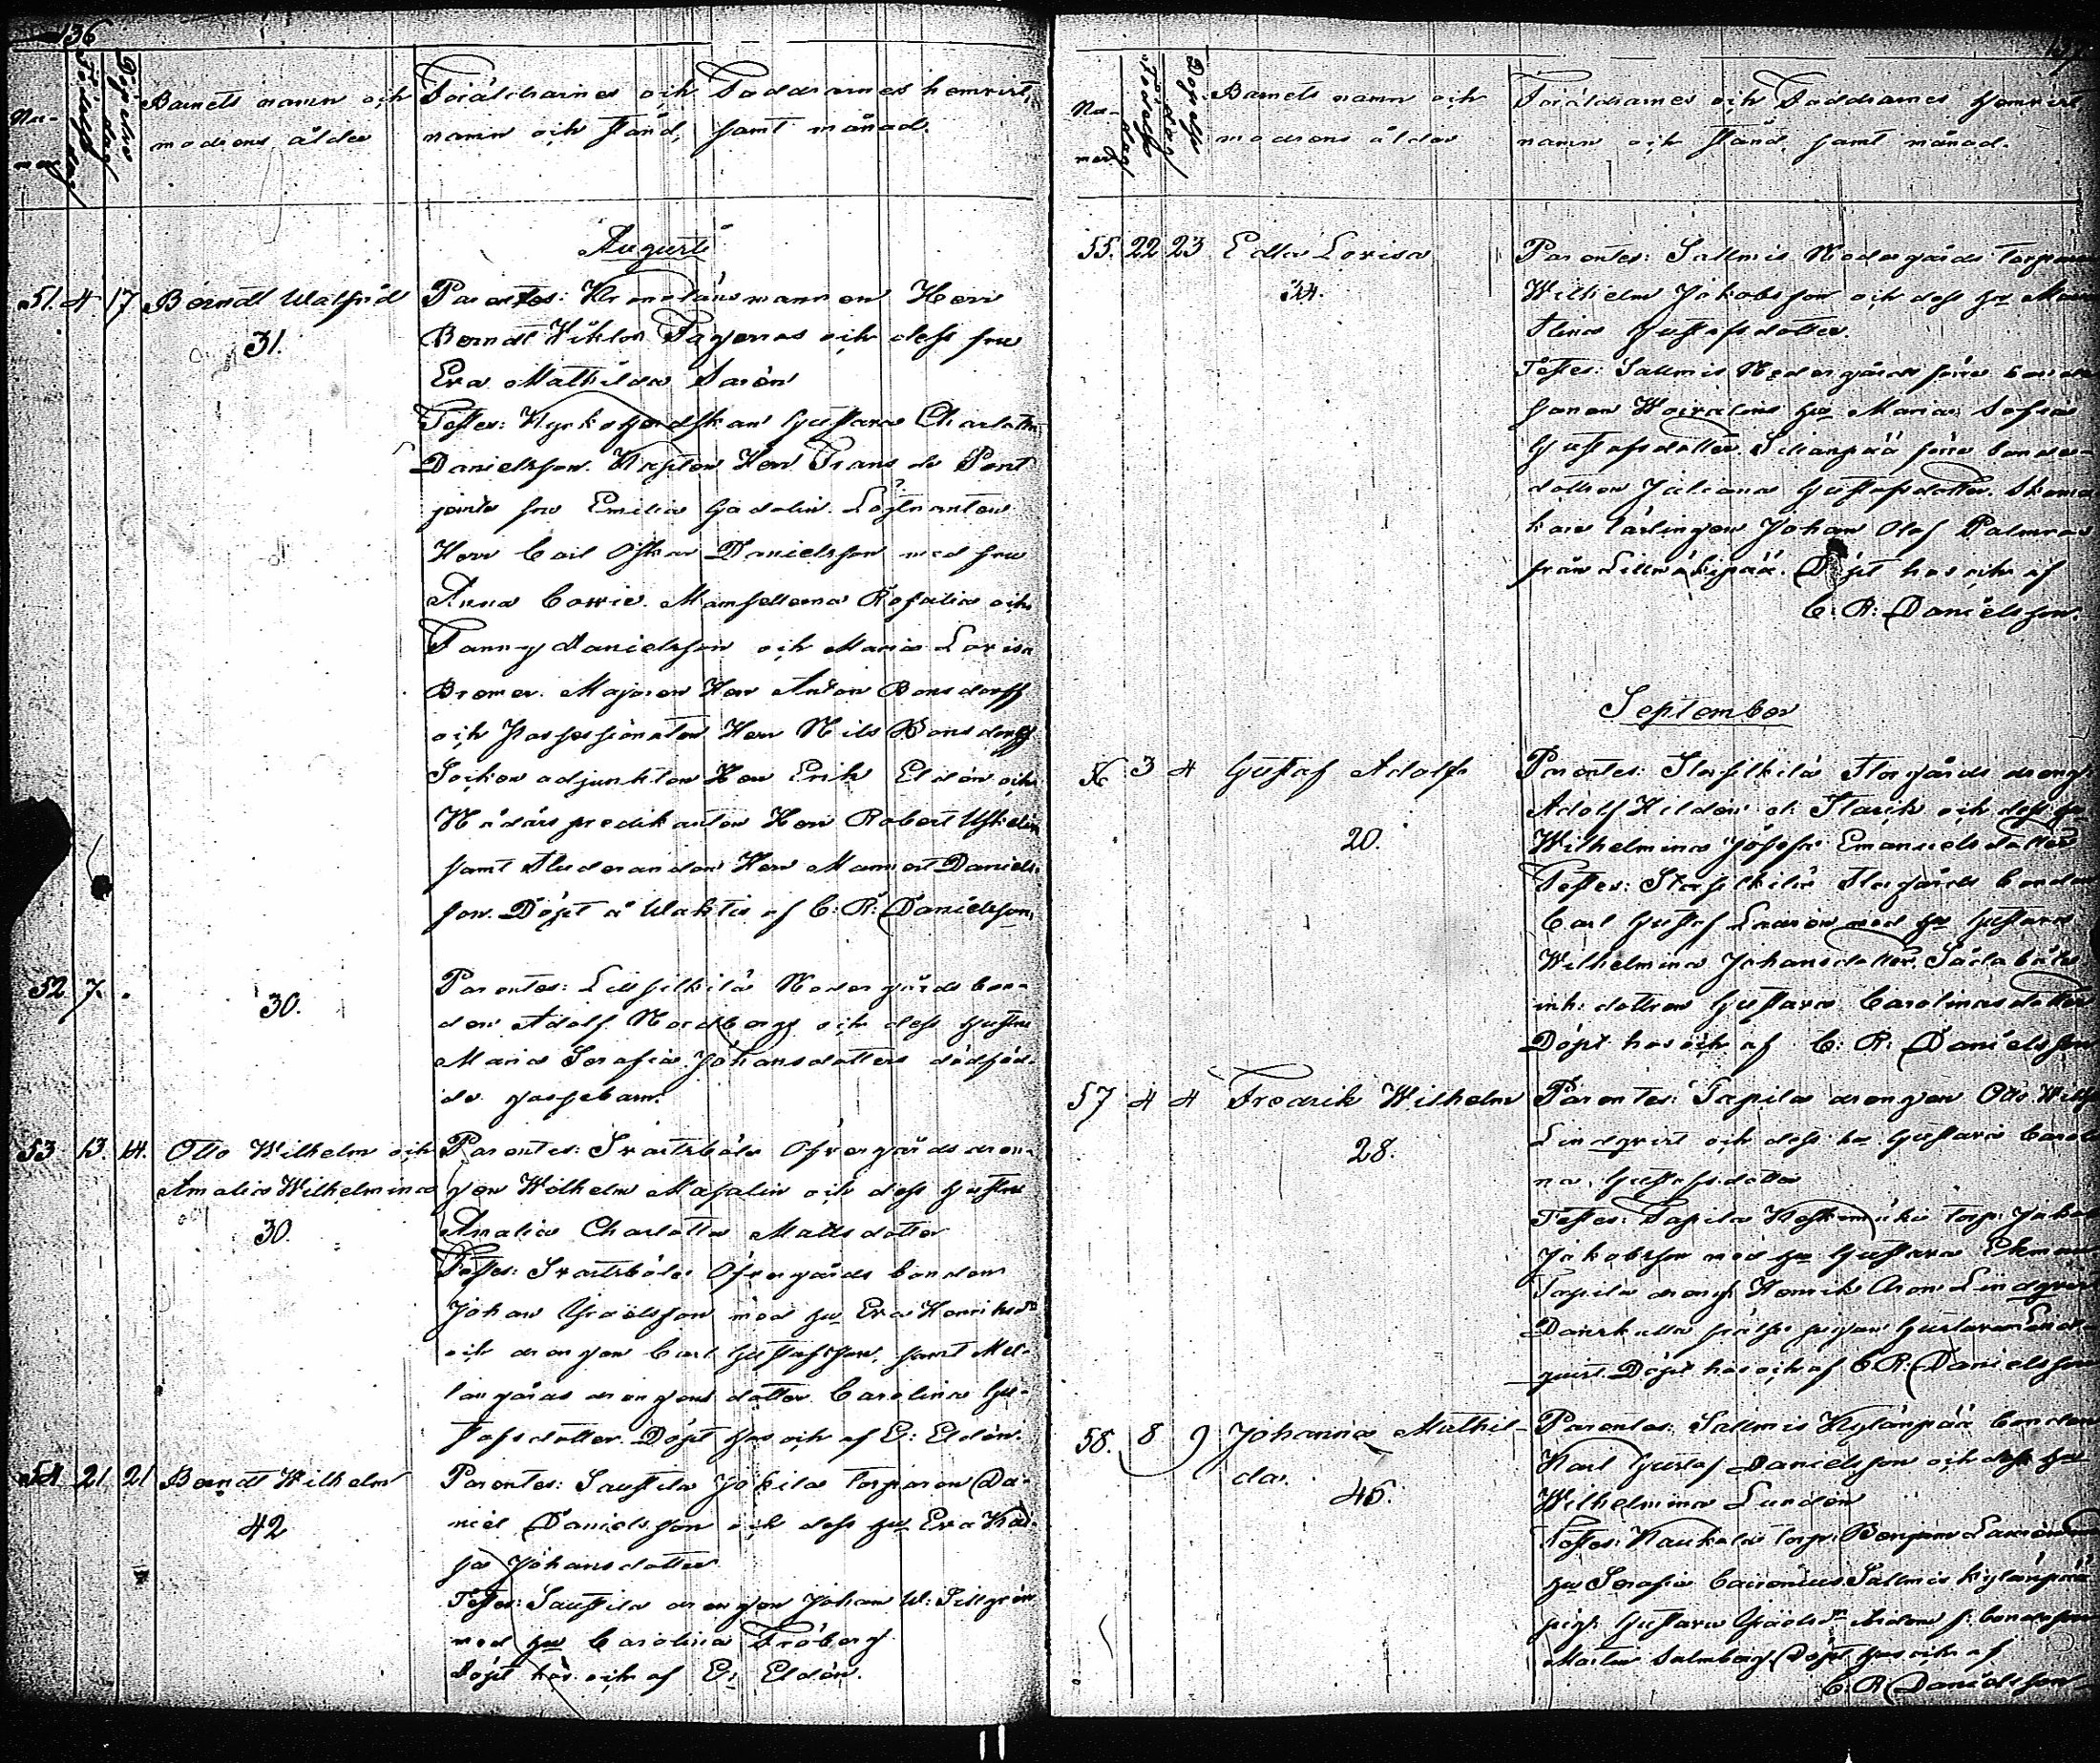 136
Nu-
mer
Födelse dag
Döpelse dag
Barnets namn och
modrens ålder
Föräldrarnes och Faddrarnes hemvist,
namn och stånd, samt månad.
Augusti
51. 4 17 Berndt Walfrid
31.
Parentes: Kronolänsmannen Herr
Berndt Wiktor Fagerros och dess fru
Eva Mathilda Sarén
Testes: Kyrkoherdskan Gustava Charlotta
Danielsson. Kapten Herr Frans de Pont
fru Emilia Gadolin. Löjtnanten
Herr Carl Oskar Danielsson med fru
Anna Cowie. Mamsellerna Rosalia och
Fanny Danielsson och Maria Lovisa
Bremer. Majoren Herr Anton Bonsdorff
och Possessionaten Herr Nils Bonsdorff
Sockenadjunkten Herr Erik Eldén och
Nådårspredikanten Herr Robert
samt Studeranden Herr Daniels-
son. Döpt å Waktis af C. R. Danielsson.
52 7.
30.
Parentes: Lillsilkilä Nedergårds bon-
den Adolf Nordberg och dess hustru
Maria Serafia Johansdotters dödföd-
de gossebarn.
53 13. 14. Otto Wilhelm och
Amalia Wilhelmina
30.
Parentes: Svartsböle Öfvergårds drän-
gen Wilhelm Masalin och dess hustru
Amalia Charlotta Mattsdotter
Testes: Svartsböle Öfvergårds bonden
Johan Israelsson med hu Eva Henriksdr
och drängen Carl Gustafsson, samt Mel-
langårds drängens dotter Carolina Gu-
stafsdotter. Döpt hos och af E: Eldén.
54. 21. 21 Berndt Wilhelm
42
Parentes: Saustila Jokila torparen Da-
niel Danielsson och dess hu Eva Kai-
sa Johansdotter
Testes: Saustila drängen Johan W: Sillgrén
med hu Carolina Fröberg
Döpt hos och af E: Eldén.
Nu-
mer
Födelse dag
Döpelse dag
Barnets namn och
modrens ålder
Föräldrarnes och Faddrarnes hemvist
namn och stånd, samt månad.
55. 22 23 Edla Lovisa
44.
Parentes: Sallmis Nedergårds torparen
Wilhelm Jakobsson och dess hu Maria
Stina Gustafsdotter.
Testes: Sallmis Nedergårds förre bonde
sonen hu Maria Sofia
Gustafsdotter. förre bonde-
dottren Juliana Gustafsdotter. Skoma-
kare lärlingen Johan Olof Palmros
från. Döpt hos och af
C. R: Danielsson.
September
56 3 4 Gustaf Adolf
20.
Parentes: Storsilkilä Storgårds dräng
Adolf Hildén och dess hu
Wilhelmina Josefa Emanuelsdotter
Testes: Storsilkilä Storgårds bonden
Carl Gustaf Lauren med hu Gustava
Wilhelmina Johansdotter.
inh: dottren Gustava Carolina
Döpt hos och af C: R: Danielsson
57 4 4 Fredrik Wilhelm
28.
Parentes: Tapila drängen Otto Wilh
Lindqvist och dess hu Gustava Caroli
na Gustafsdotter
Testes: Tapila torp: Jakob
Jakobsson med hu Gustava Ekman
Tapila dräng Henrik Aron Lindqvist
Gustava Lind-
qvist. Döpt hos och af C. R: Danielsson
58. 8 9 Johanna Mathil-
da.
45.
Parentes: Sallmis Kylänpää bonden
Karl Gustaf Danielsson och dess hu
Wilhelmina Lundén
Testes: torp: Benjam Laurén med
hu Serafia Sallmis Kylänpää
pig: Gustava
Malmberg. Döpt hos och af
C. R. Danielsson